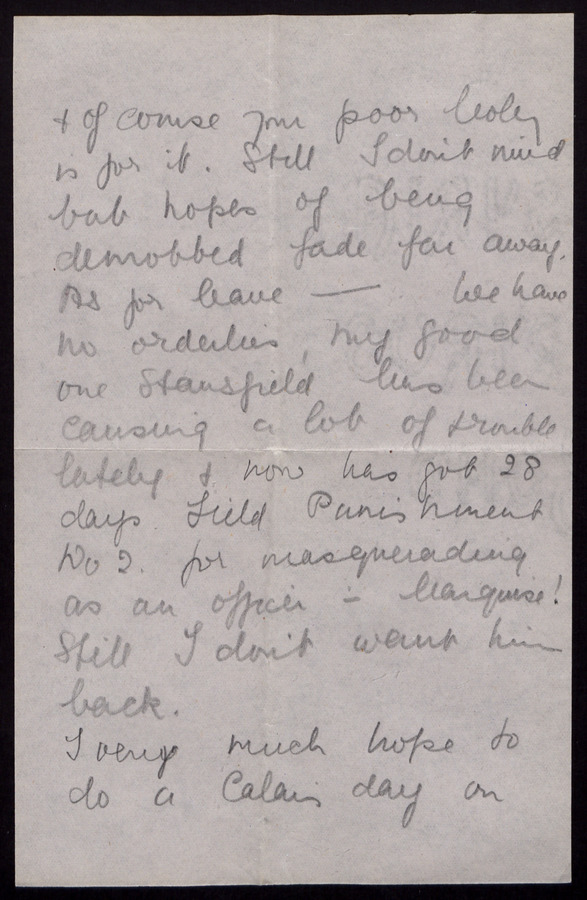 & of course your poor
is for it. Still I don't mind
but hopes of being
demobbed fade far away.
As for leave — We have
no orderlies, my good
one Stansfield has been
causing a lot of trouble
lately & now has got 28
days Field Punishment
No 2. for masquerading
as an officer – Marquise!
Still I don't want him
back.
I very much hope to
do a Calais day on